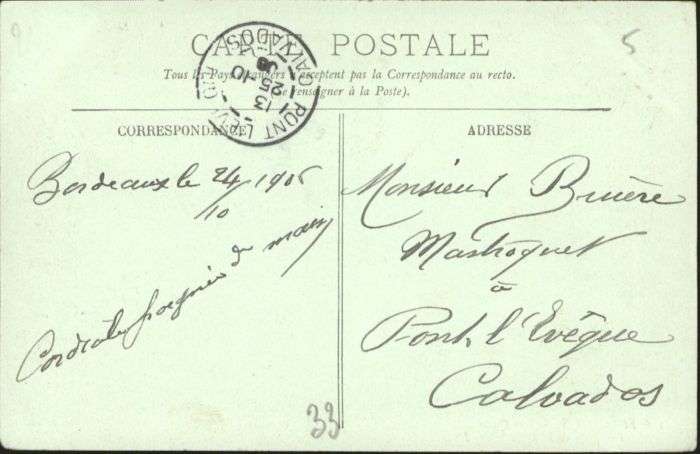 CARTE POSTALE
Tous les Pays étrangers n'acceptent pas la Correspondance au recto.
(Se renseigner à la Poste).
CORRESPONDANCE
ADRESSE
PONT-L'EVEQUE
CALVADOS
5
Bordeaux le 24/10 1906
Cordiale poignée de main
Monsieur Bruère
Mastroquet
à
Pont l'Evêque
Calvados
33